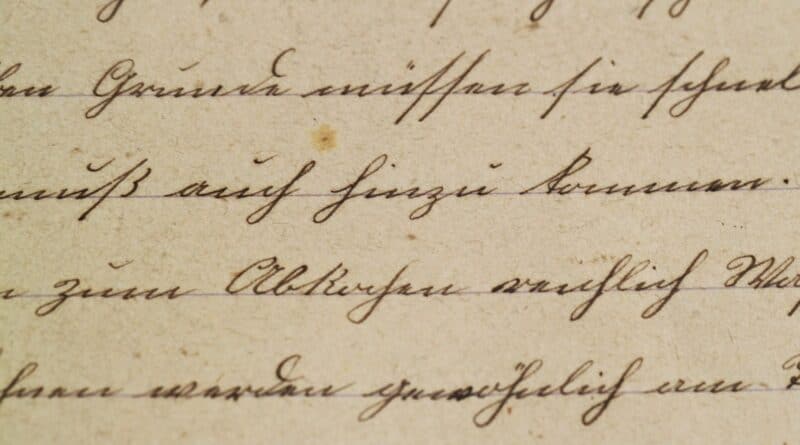 en Grunde müssen sie schnel
muß auch hinzu kommen.
zum Abkochen reichlich Wa
hnen werden gewöhnlich am